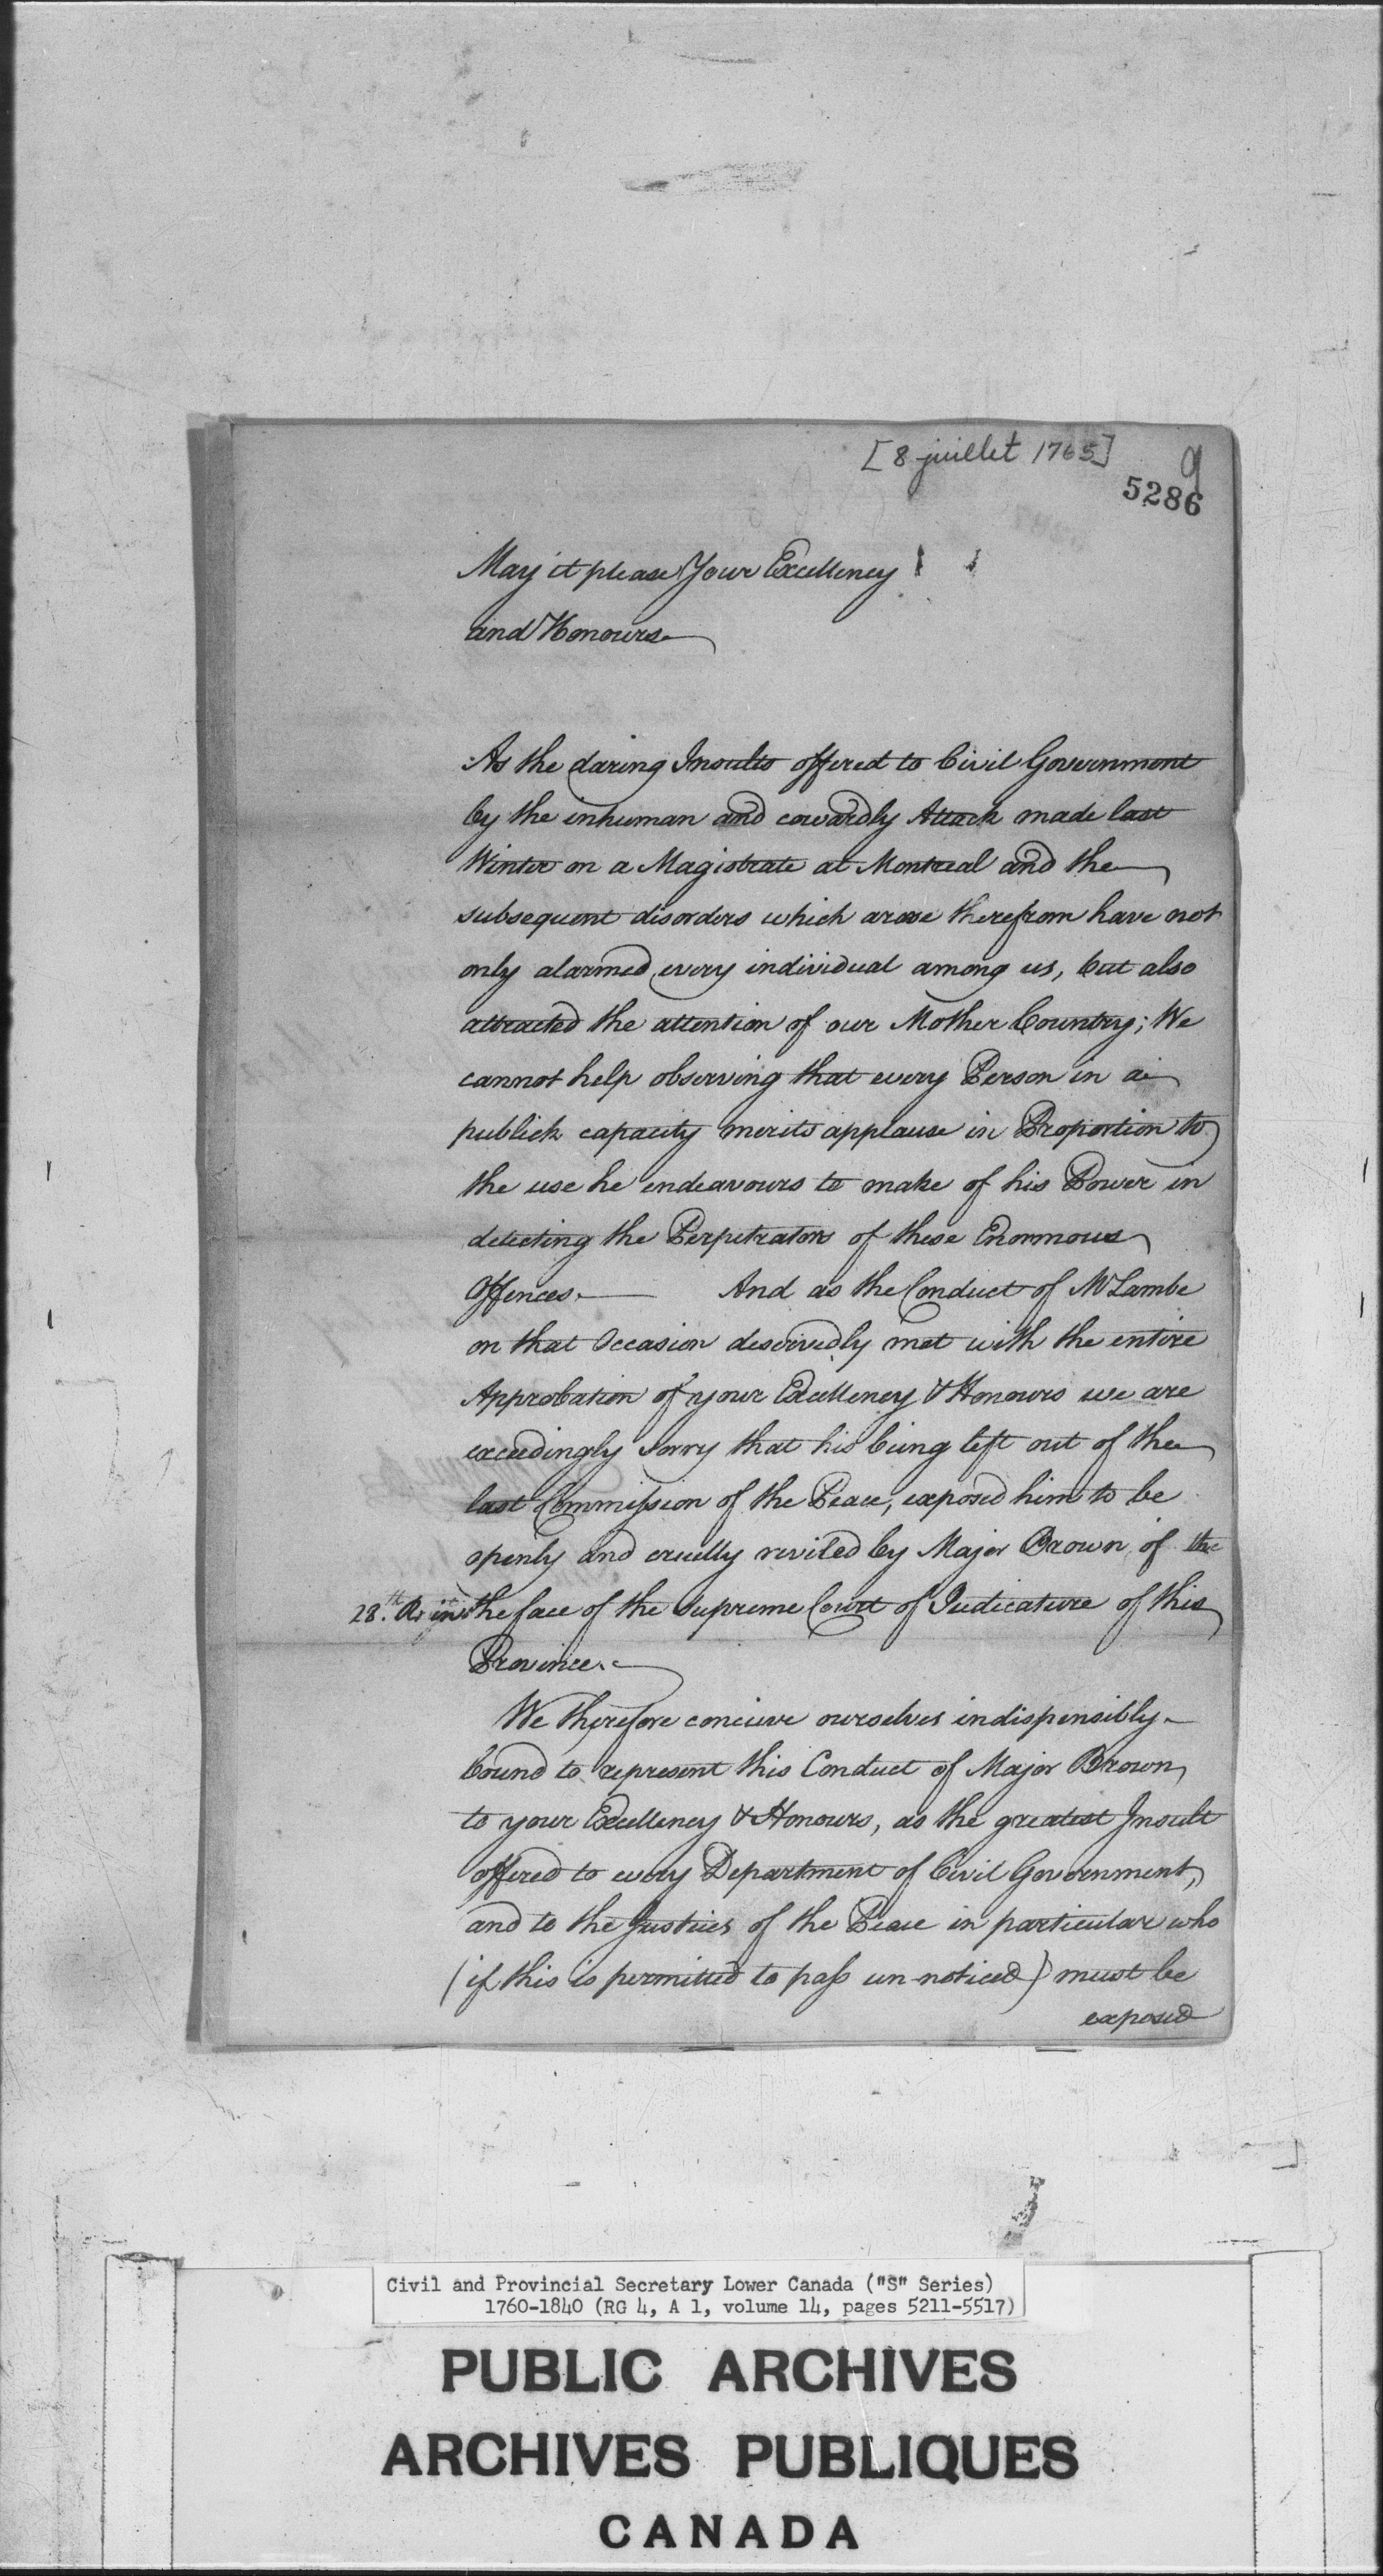 [8 juillet 1765]
9
5286
May it please Your Excellency
and Honours
As the daring Insults offered to Civil Government
by the inhuman and cowardly Attack made last
Winter on a Magistrate at Montreal and the
subsequent disorders which arose therefrom have not
only alarmed every individual among us, but also
attracted the attention of our Mother Country; We
cannot help observing that every Person in a
publick capacity merits applause in Proportion to
the use he endeavours to make of his Power in
detecting the Perpetrators of these Enormous
Offences. And as the Conduct of Mr Lambe
on that Occasion deservedly met with the entire
Approbation of your Excellency & Honours we are
exceedingly sorry that his being left out of the
last Commission of the Peace, exposed him to be
openly and cruelly reviled by Major Brown of the
28th Rt in the face of the Supreme Court of Judicature of this
Province.
We therefore concieve ourselves indispensibly
bound to represent this Conduct of Major Brown
to your Excellency & Honours, as the greatest Insult
offered to every Department of Civil Government,
and to the Justices of the Peace in particular who
(if this is permitted to pass un-noticed) must be
exposed
Civil and Provincial Secretary Lower Canada ("S" Series)
1760-1840 (RG 4, A 1, volume 14, pages 5211-5517)
PUBLIC ARCHIVES
ARCHIVES PUBLIQUES
CANADA